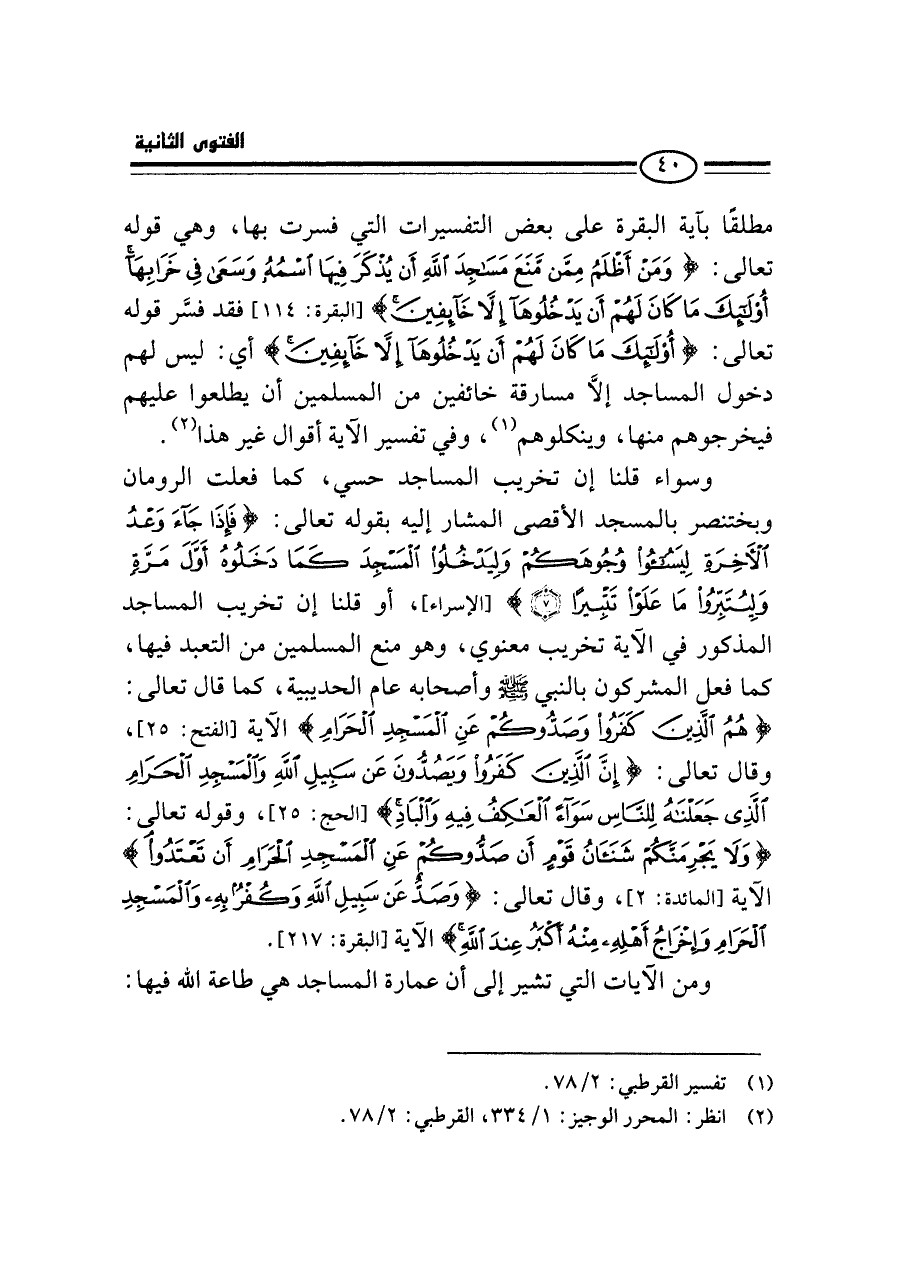 الفتوى الثانية
٤٠
مطلقًا بآية البقرة على بعض التفسيرات التي فسرت بها، وهي قوله
تعالى: ﴿ وَمَنْ أَظْلَمُ مِمَّن مَّنَعَ مَسَٰجِدَ ٱللَّهِ أَن يُذْكَرَ فِيهَا ٱسْمُهُۥ وَسَعَىٰ فِى خَرَابِهَآۚ
أُو۟لَٰٓئِكَ مَا كَانَ لَهُمْ أَن يَدْخُلُوهَآ إِلَّا خَآئِفِينَۚ﴾ [البقرة: ١١٤] فقد فسَّر قوله
تعالى: ﴿ أُو۟لَٰٓئِكَ مَا كَانَ لَهُمْ أَن يَدْخُلُوهَآ إِلَّا خَآئِفِينَۚ﴾ أي: ليس لهم
دخول المساجد إلاَّ مسارقة خائفين من المسلمين أن يطلعوا عليهم
فيخرجوهم منها، وينكلوهم(١)، وفي تفسير الآية أقوال غير هذا(٢).
وسواء قلنا إن تخريب المساجد حسي، كما فعلت الرومان
وبختنصر بالمسجد الأقصى المشار إليه بقوله تعالى: ﴿ فَإِذَا جَآءَ وَعْدُ
ٱلْأَخِرَةِ لِيَسُۥٓـُٔوا۟ وُجُوهَكُمْ وَلِيَدْخُلُوا۟ ٱلْمَسْجِدَ كَمَا دَخَلُوهُ أَوَّلَ مَرَّةٍ
وَلِيُتَبِّرُوا۟ مَا عَلَوْا۟ تَتْبِيرًا ٧ ﴾ [الإسراء]، أو قلنا إن تخريب المساجد
المذكور في الآية تخريب معنوي، وهو منع المسلمين من التعبد فيها،
كما فعل المشركون بالنبي ﷺ وأصحابه عام الحديبية، كما قال تعالى:
﴿ هُمُ ٱلَّذِينَ كَفَرُوا۟ وَصَدُّوكُمْ عَنِ ٱلْمَسْجِدِ ٱلْحَرَامِ ﴾ الآية [الفتح: ٢٥]،
وقال تعالى: ﴿ إِنَّ ٱلَّذِينَ كَفَرُوا۟ وَيَصُدُّونَ عَن سَبِيلِ ٱللَّهِ وَٱلْمَسْجِدِ ٱلْحَرَامِ
ٱلَّذِى جَعَلْنَٰهُ لِلنَّاسِ سَوَآءً ٱلْعَٰكِفُ فِيهِ وَٱلْبَادِۚ﴾ [الحج: ٢٥]، وقوله تعالى:
﴿ وَلَا يَجْرِمَنَّكُمْ شَنَـَٔانُ قَوْمٍ أَن صَدُّوكُمْ عَنِ ٱلْمَسْجِدِ ٱلْحَرَامِ أَن تَعْتَدُوا۟ ﴾
الآية [المائدة: ٢]، وقال تعالى: ﴿ وَصَدٌّ عَن سَبِيلِ ٱللَّهِ وَكُفْرٌۢ بِهِۦ وَٱلْمَسْجِدِ
ٱلْحَرَامِ وَإِخْرَاجُ أَهْلِهِۦ مِنْهُ أَكْبَرُ عِندَ ٱللَّهِۚ﴾ الآية [البقرة: ٢١٧].
ومن الآيات التي تشير إلى أن عمارة المساجد هي طاعة الله فيها:
(١) تفسير القرطبي: ٢/ ٧٨.
(٢) انظر: المحرر الوجيز: ١/ ٣٣٤، القرطبي: ٢/ ٧٨.